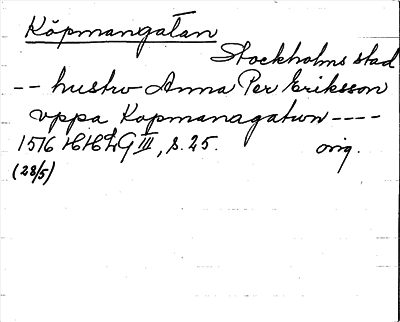 Köpmangatan
Stockholms stad
-- hustro Anna Per Eriksson
vppa Kopmanagatun ----
1576 HHLG III, s. 25. orig.
(28/5)